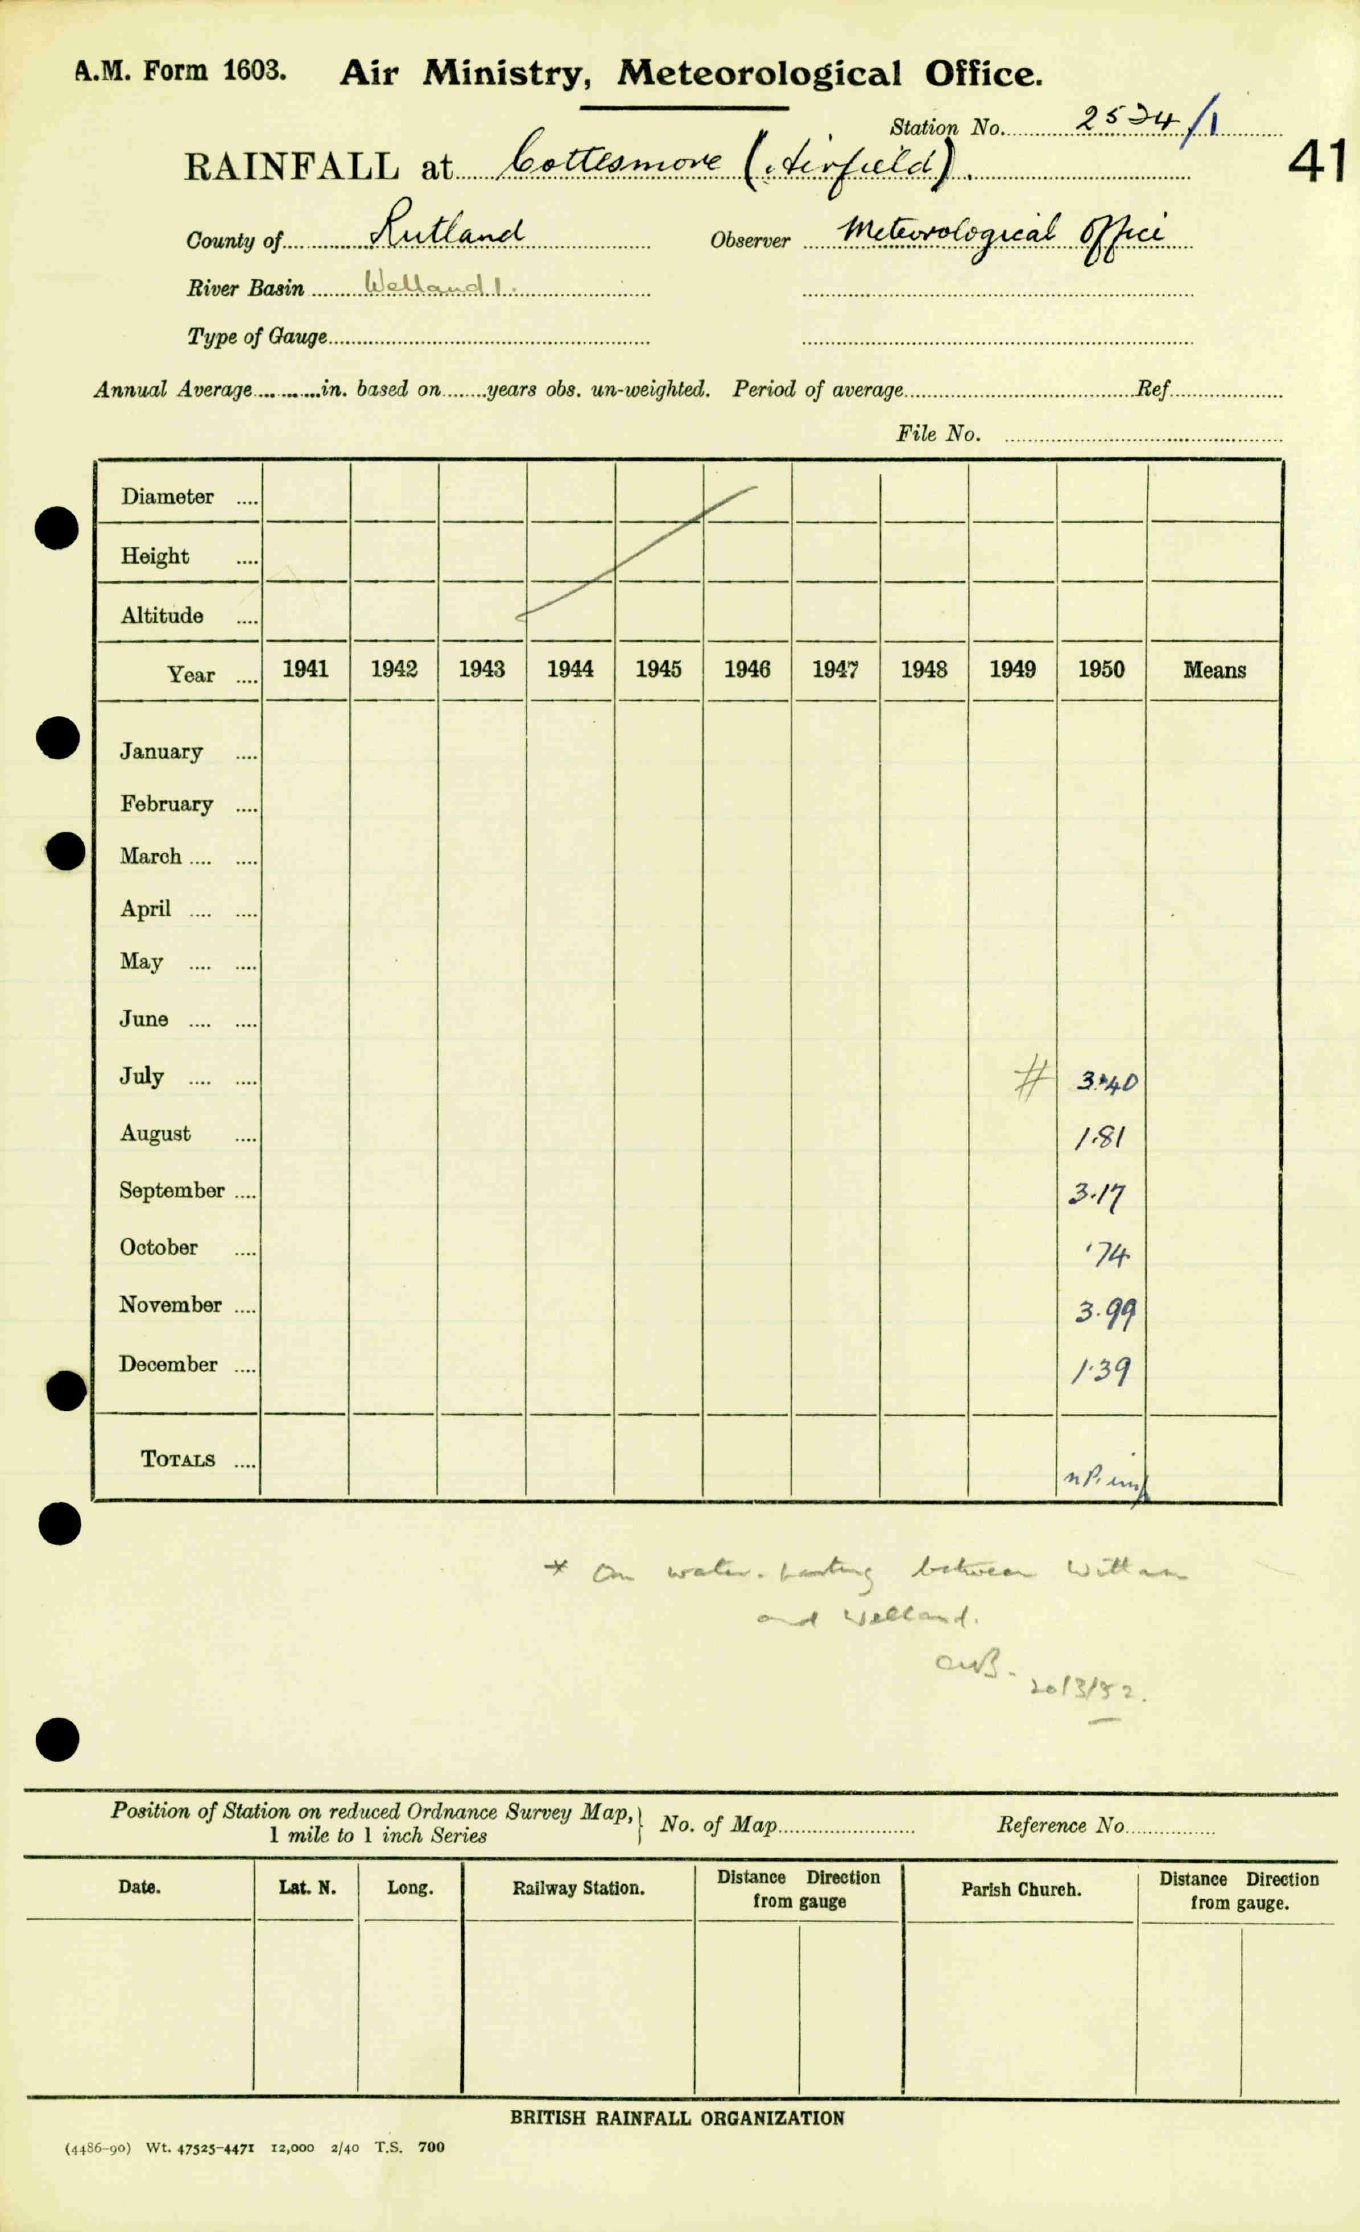 A.M. Form 1603. Air Ministry, Meteorological Office.
Station No. 2524/1
RAINFALL at Cottesmore (Airfield).
41
County of Rutland Observer Meteorological Office
River Basin Welland 1.
Type of Gauge
Annual Average in. based on years obs. un-weighted. Period of average Ref.
File No.
Diameter
Height
Altitude
Year 1941 1942 1943 1944 1945 1946 1947 1948 1949 1950 Means
January
February
March
April
May
June
July # 3.40
August 1.81
September 3.17
October .74
November 3.99
December 1.39
TOTALS
* On water-parting between Witham
and Welland.
20/3/52.
Position of Station on reduced Ordnance Survey Map,
1 mile to 1 inch Series
No. of Map Reference No.
Date. Lat. N. Long. Railway Station. Distance Direction from gauge Parish Church. Distance Direction from gauge.
BRITISH RAINFALL ORGANIZATION
(4486-90) Wt. 47525-4471 12,000 2/40 T.S. 700